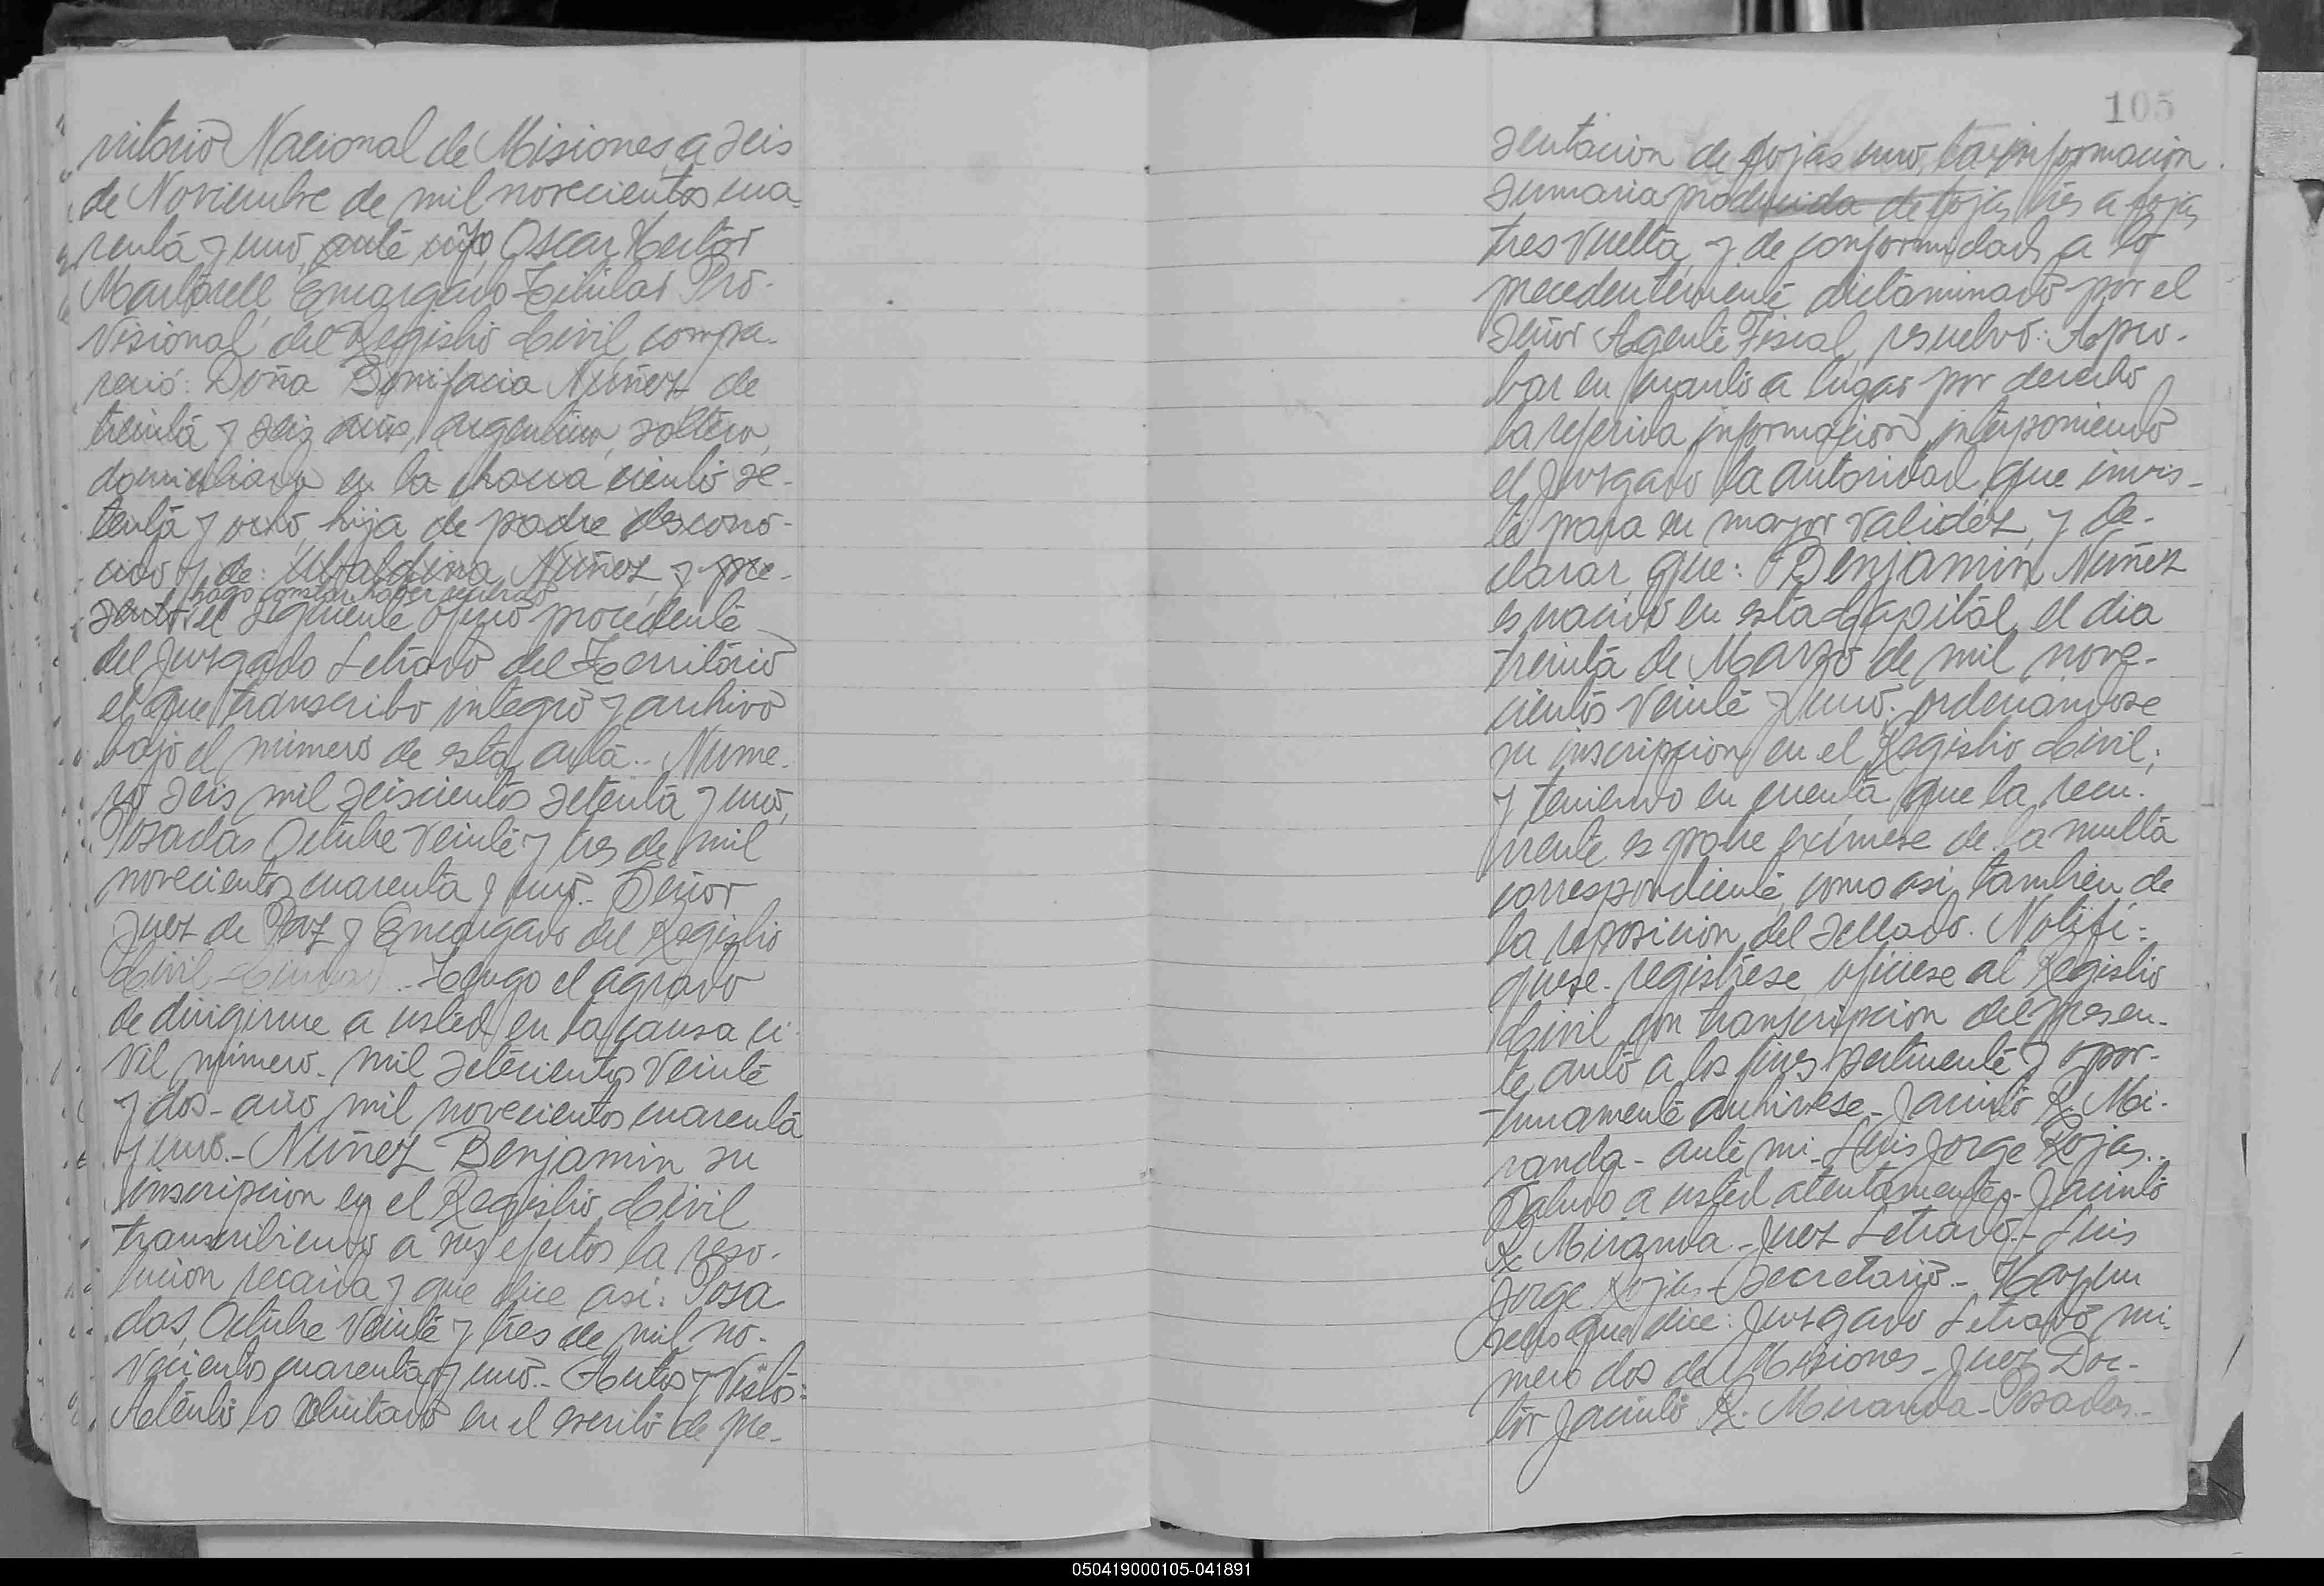 rritorio Nacional de Misiones, a seis
de Noviembre de mil novecientos cua-
renta y uno, ante mi, Oscar Hector
Martorell, Encargado Titular Pro-
visional del Registro Civil, compa-
reció: Doña Bonifacia Nuñez de
treinta y seis años, argentina, soltera,
domiciliada en la chacra ciento se-
tenta y ocho, hija de padre descono-
cido y de: Ubaldina Nuñez, y pre-
hago constar haber recibido
sento el siguiente oficio procedente
del Juzgado Letrado del Territorio
el que transcribo integro y archivo
bajo el número de esta acta.- Nume-
ro seis mil seiscientos setenta y uno,
Posadas Octubre veinte y tres de mil
novecientos cuarenta y uno.- Señor
Juez de Paz y Encargado del Registro
Civil - Ciudad.- Tengo el agrado
de dirigirme a usted en la causa ci-
vil número - mil setecientos veinte
y dos - año mil novecientos cuarenta
y uno.- Nuñez Benjamin su
inscripcion en el Registro Civil
transcribiendo a sus efectos la reso-
lucion recaida y que dice asi: Posa-
das, Octubre veinte y tres de mil no-
vecientos cuarenta y uno.- Autos y Vistos:
Atento lo solicitado en el escrito de pre-
105
sentacion de fojas uno, la informacion
sumaria producida de fojas tres a fojas
tres vuelta, y de conformidad a lo
precedentemente dictaminado por el
señor Agente Fiscal, resuelvo: Apro-
bar en cuanto a lugar por derecho
la referida informacion, interponiendo
el Juzgado la autoridad que invis-
te para su mayor validéz, y de-
clarar que: Benjamin Nuñez
es nacido en esta Capital, el dia
treinta de Marzo de mil nove-
cientos veinte y uno; ordenandose
su inscripcion en el Registro Civil;
y teniendo en cuenta que la recu-
rrente es pobre eximese de la multa
correspondiente, como asi, tambien de
la reposicion del sellado. Notifi-
quese - registrese oficiese al Registro
Civil con transcripcion del presen-
te auto a los fines pertinente y opor-
tunamente archivese - Jacinto R. Mi-
randa - ante mi - Luis Jorge Rojas.-
Saludo a usted atentamente - Jacinto
R. Miranda - Juez Letrado - Luis
Jorge Rojas - Secretario - Hay un
sello que dice: Juzgado Letrado nú-
mero dos de Misiones - Juez Doc-
tor Jacinto R. Miranda - Posadas.-
050419000105-041891